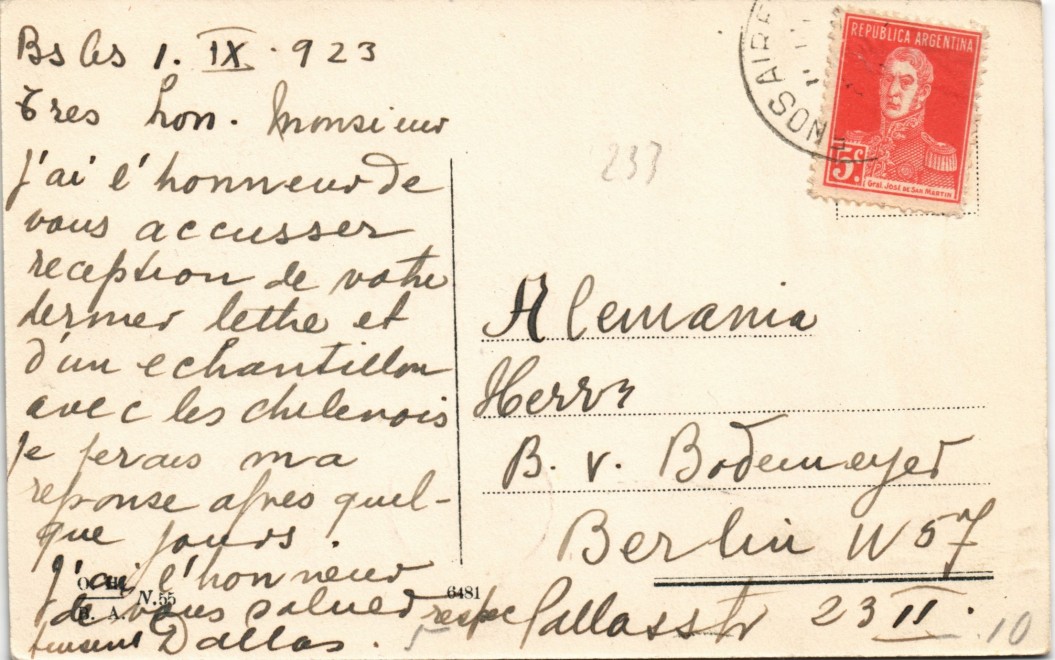 Bs As 1. IX. 923
Tres hon. Monsieur
J'ai l'honneur de
vous accusser
reception de votre
dernier lettre et
d'un echantillon
avec les chilenois
je ferais ma
reponse apres quel-
que jours.
J'ai l'honneur
de vous saluer respec
tuesent Dallas.
O. H.
B. A. N.55
6481
233
ENOS AIRE
REPUBLICA ARGENTINA
5c.
Gral José DE SAN MARTIN
Alemania
Herrn
B. v. Bodemeyer
Berlin W 57
Pallasstr 23 II.
10